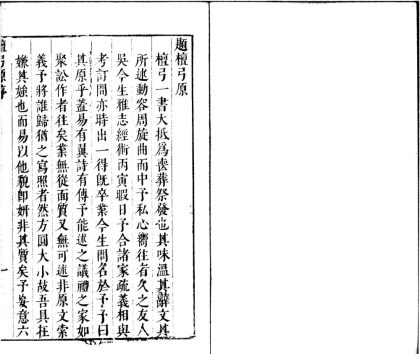 題檀弓原
檀弓一書大抵為喪葬祭發也其味溫其辭文其
所述動容周旋曲而中予私心嚮往者久之友人
吳今生雅志經術丙寅暇日予合諸家疏義相與
考訂間亦時出一得既卒業今生問名於予予曰
其原乎蓋易有翼詩有傳予能述之議禮之家如
聚訟作者往矣業無從面質又無可述非原文索
義予將誰歸猶之寫照者然方圓大小故吾具在
嫌其媸也而易以他貌即妍非其質矣予妄意六
檀弓原
一